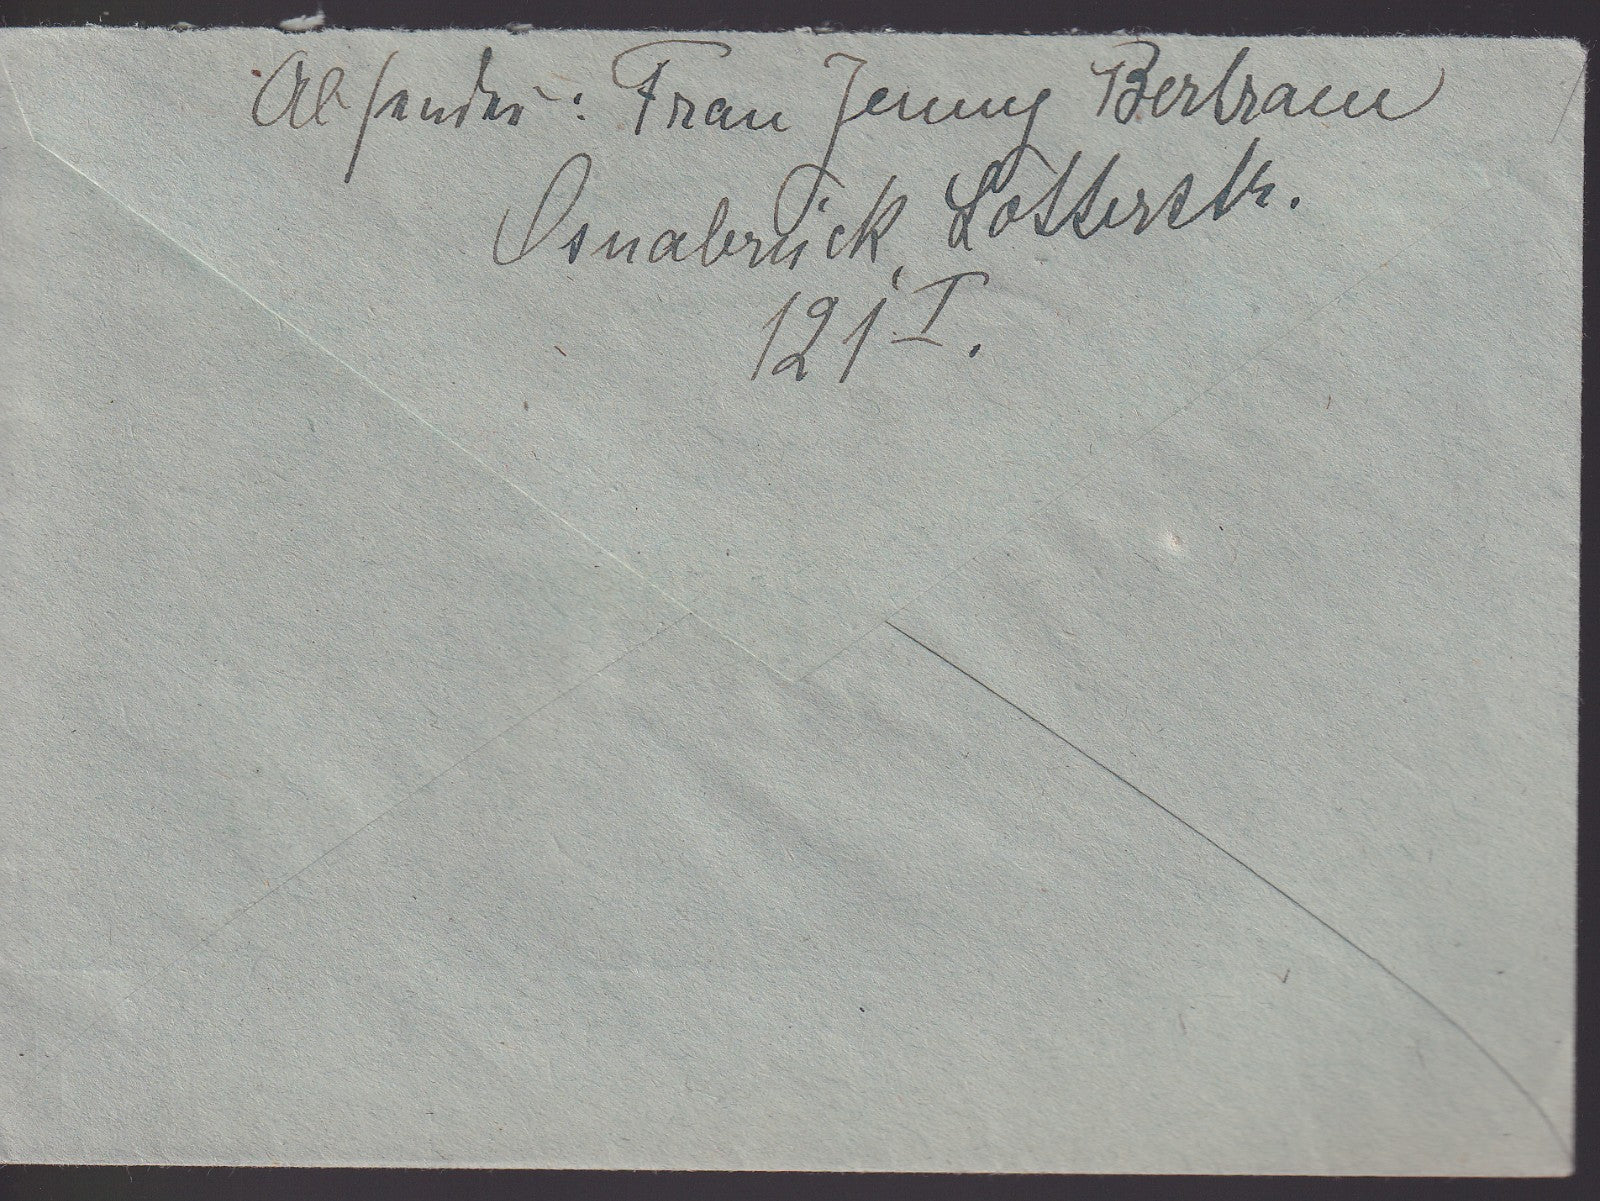 Absender: Frau Jenny Bertram
Osnabrück, Lotterstr.
121 I.